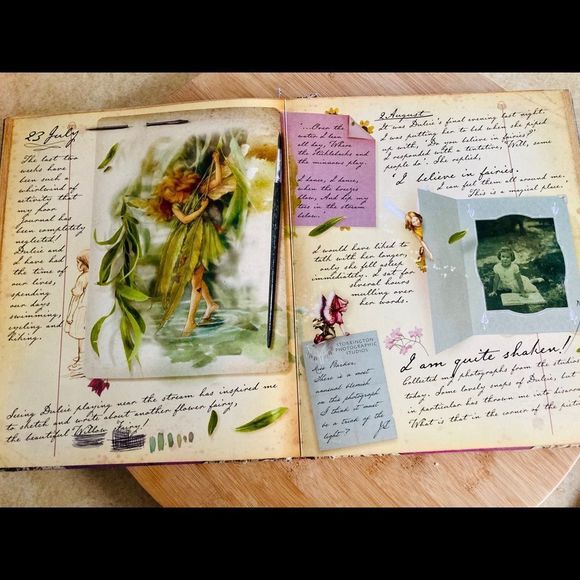 23 July
The last two
weeks have
been such a
whirlwind of
activity that
my poor
Journal has
been completely
neglected!
Dulcie and
I have had
the time of
our lives,
spending
our days
swimming,
cycling and
hiking.
Seeing Dulcie playing near the stream has inspired me
to sketch and write about another flower fairy,
the beautiful Willow Fairy!
"...Over the
water I lean
all day, Where
the sticklebacks and
the minnows play.
I dance, I dance,
when the breezes
blow, And dip my
toes in the stream
below.
2 August
It was Dulcie's final evening last night.
I was putting her to bed when she piped
up with, "Do you believe in fairies?"
I responded with a tentative, "Well, some
people do". She replied,
"I believe in fairies.
I can feel them all around me.
This is a magical place."
I would have liked to
talk with her longer,
only she fell asleep
immediately. I sat for
several hours
mulling over
her words.
STORRINGTON
PHOTOGRAPHIC
STUDIOS
Miss Barker.
There is a most
unusual blemish
on this photograph.
I think it must
be a trick of the
light?
I am quite shaken!
Collected my photographs from the studios
today. Some lovely snaps of Dulcie, but
in particular has thrown me into
What is that in the corner of the